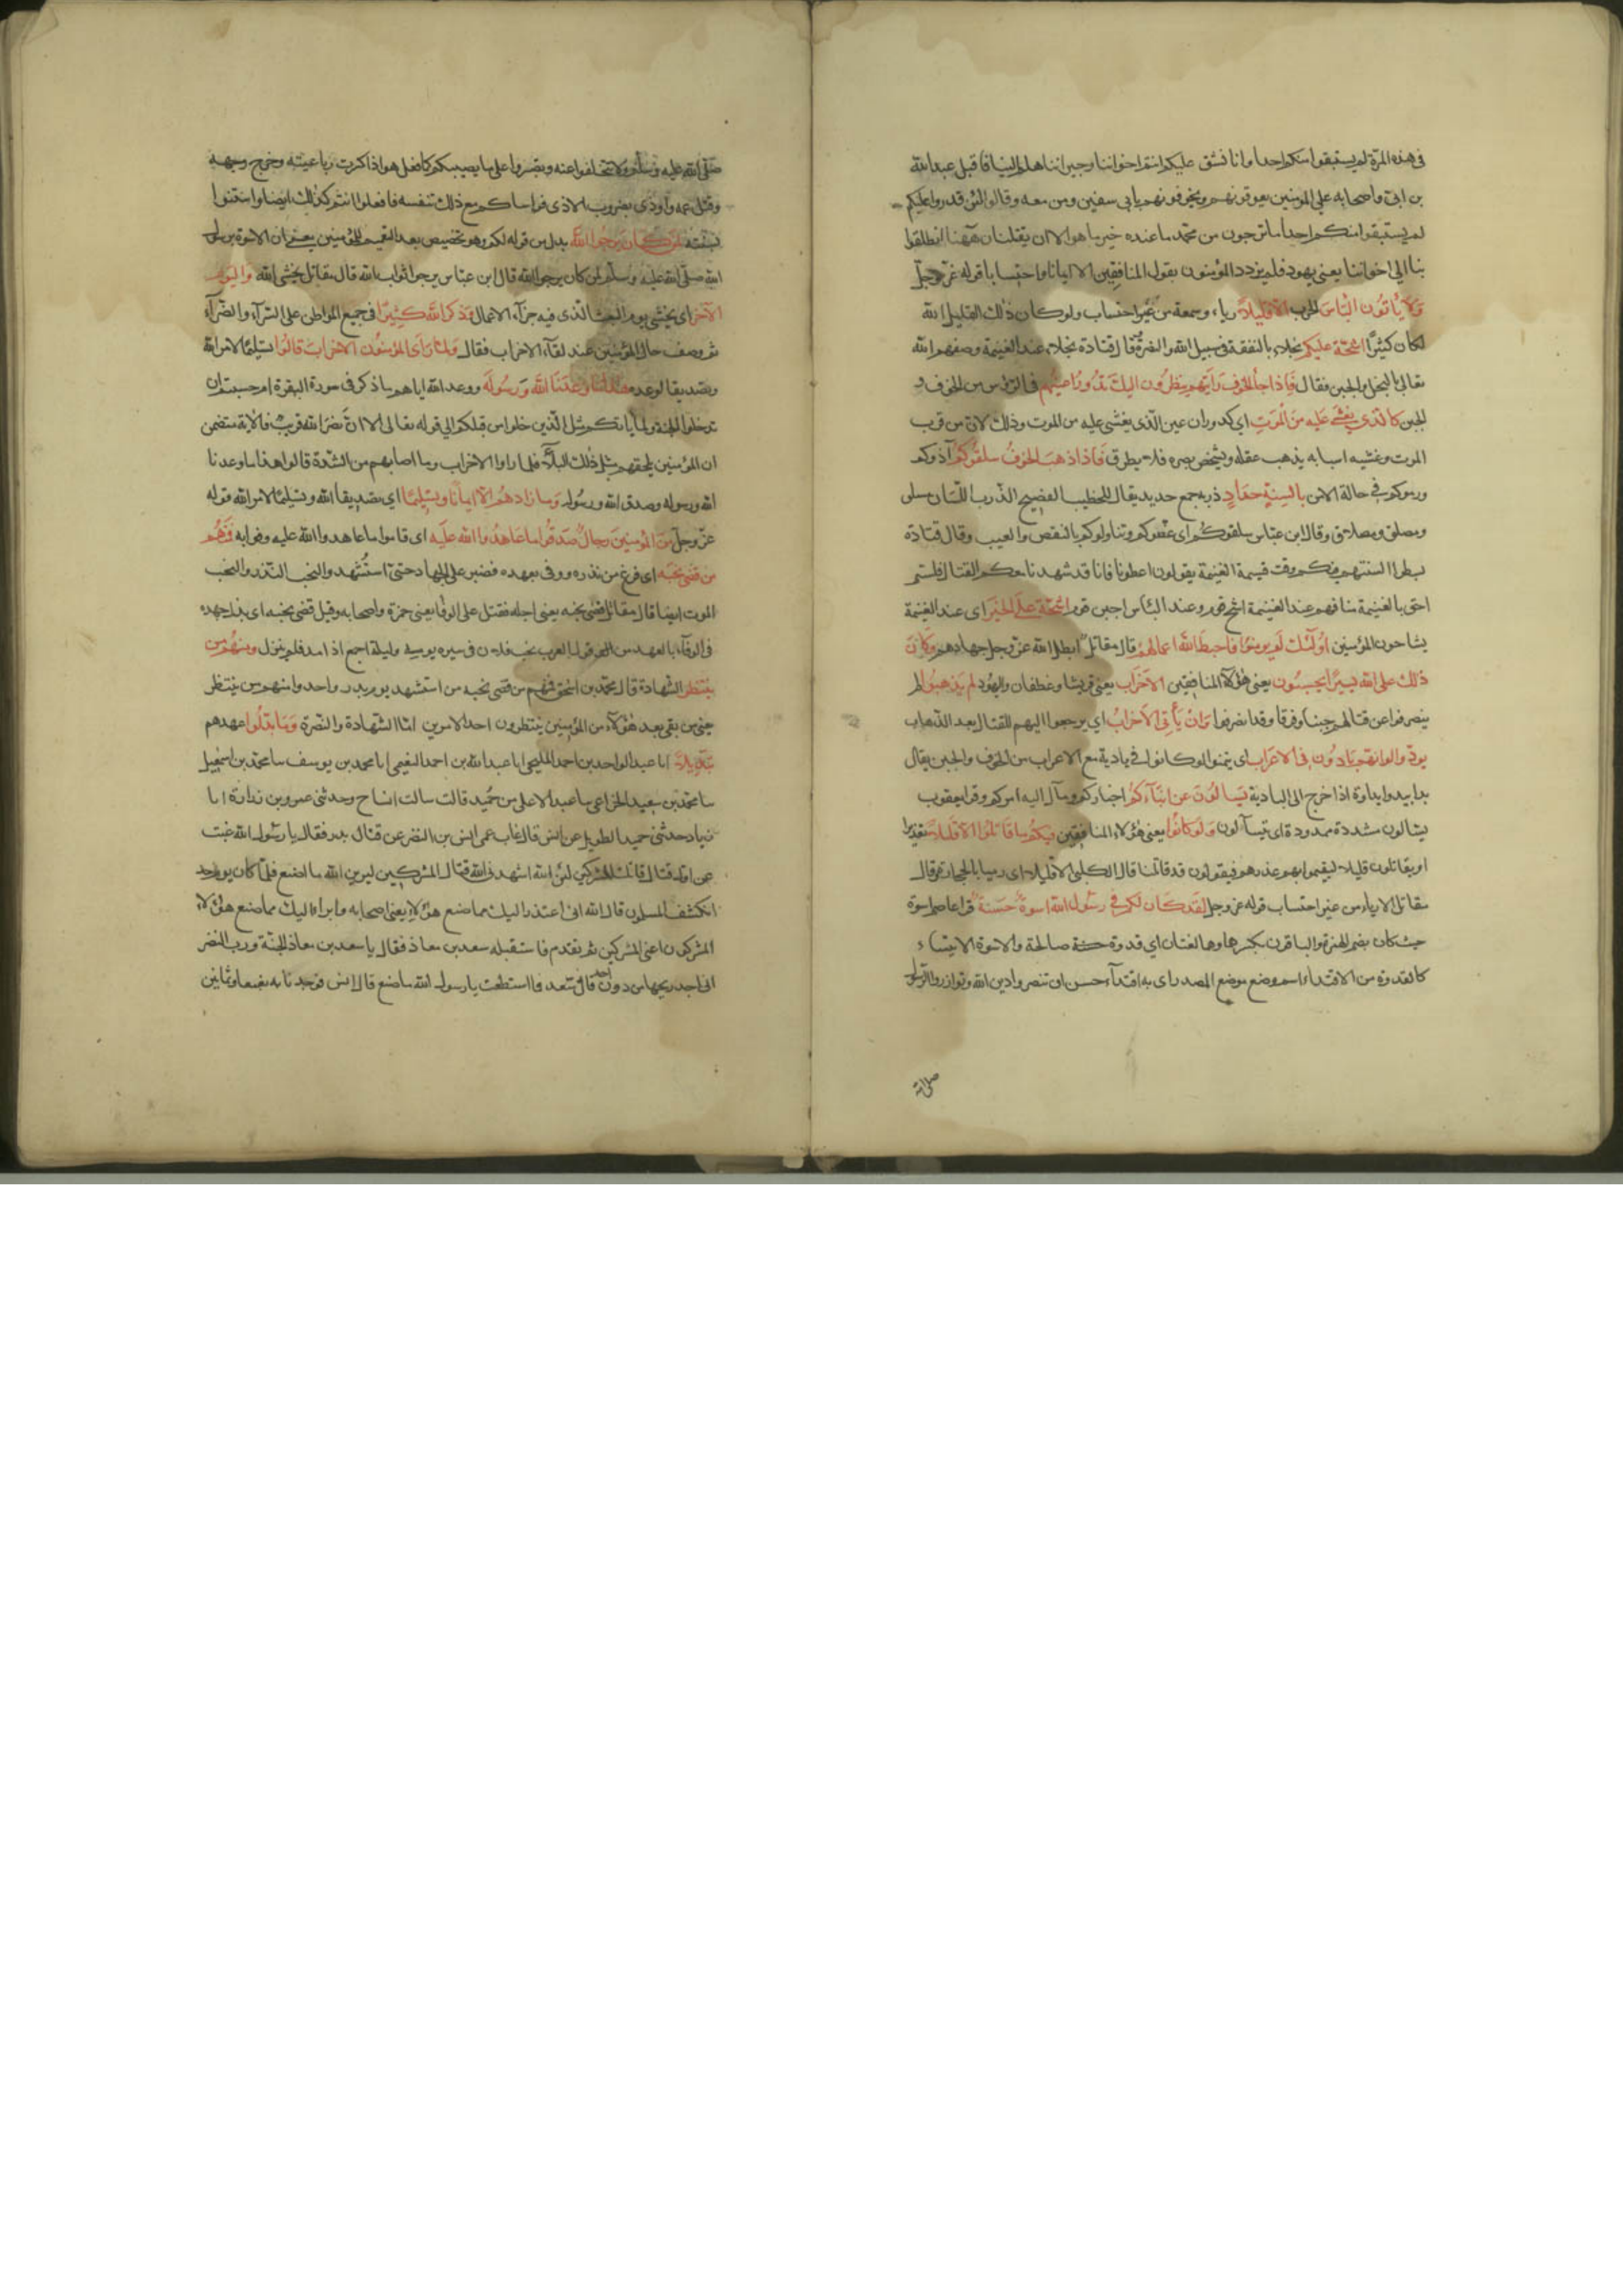 في هذه المرة لم يستبقوا منكم احدا وانا نشفق عليكم انتم اخواننا وجيراننا هلم الينا فاقبل عبد الله
بن ابي واصحابه على المؤمنين يعوقونهم ويخوفونهم بابي سفين ومن معه وقالوا لئن قدروا عليكم
لم يستبقوا منكم احدا ما ترجون من محمد ما عنده خير ما هو الا ان يقتلنا ههنا انطلقوا
بنا الى اخواننا يعني يهود فلم يزدد المؤمنون بقول المنافقين الا ايمانا واحتسابا قوله عز وجل
ولا ياتون الباس الحرب الا قليلا رياء وسمعة من غير احتساب ولو كان ذلك القليل لله
لكان كثيرا اشحة عليكم بخلاء بالنفقة في سبيل الله والنصرة قال قتادة بخلاء عند الغنيمة وصفهم الله
تعالى بالبخل والجبن فقال فاذا جاء الخوف رايتهم ينظرون اليك تدور اعينهم في الرؤس من الخوف و
الجبن كالذي يغشى عليه من الموت اي كدوران عين الذي يغشى عليه من الموت وذلك لان من قرب
الموت وغشيه اسبابه يذهب عقله ويشخص بصره فلا يطرق فاذا ذهب الخوف سلقوكم آذوكم
ورموكم في حالة الامن بالسنة حداد ذربة جمع حديد يقال للخطيب الفصيح الذرب اللسان مسلق
ومصلق ومصلاق وقال ابن عباس سلقوكم اي عضوكم وتناولوكم بالنقص والعيب وقال قتادة
بسطوا السنتهم فيكم وقت قسمة الغنيمة يقولون اعطونا فانا قد شهدنا معكم القتال فلستم
احق بالغنيمة منا فهم عند الغنيمة اشح قوم وعند الباس اجبن قوم اشحة على الخير اي عند الغنيمة
يشاحون المؤمنين اولئك لم يومنوا فاحبط الله اعمالهم قال مقاتل ابطل الله عز وجل جهادهم وكان
ذلك على الله يسيرا يحسبون يعني هؤلاء المنافقين الاحزاب يعني قريشا وغطفان واليهود لم يذهبوا لم
ينصرفوا عن قتالهم جبنا وفرقا وقد انصرفوا وان يأتي الاحزاب اي يرجعوا اليهم للقتال بعد الذهاب
يودوا لو انهم بادون في الاعراب اي يتمنوا لو كانوا في بادية مع الاعراب من الخوف والجبن يقال
بدا يبدو بداوة اذا خرج الى البادية يسالون عن انبائكم اخباركم وما آل اليه امركم وقرا يعقوب
يسالون مشددة ممدودة اي يتسآلون ولو كانوا يعني هؤلاء المنافقين فيكم ما قاتلوا الا قليلا تعذيرا
او يقاتلون قليلا ليقيموا بهم عذرهم فيقولون قد قاتلنا قال الكلبي الا قليلا اي رميا بالحجارة وقال
مقاتل الا رياء من غير احتساب قوله عز وجل لقد كان لكم في رسول الله اسوة حسنة قرا عاصم اسوة
حيث كان بضم الهمزة والباقون بكسرها وهما لغتان اي قدوة حسنة صالحة والاسوة الايتساء
كالقدوة من الاقتداء اسم وضع موضع المصدر اي به اقتداء حسن ان تنصروا دين الله وتوازروا الرسول
صلى الله
صلى الله عليه وسلم ولا تتخلفوا عنه وتصبروا على ما يصيبكم كما فعل هو اذا كسرت رباعيته وجرح وجهه
وقتل عمه وأوذي بضروب الاذى فواساكم مع ذلك بنفسه فافعلوا انتم كذلك ايضا واستنوا
بسنته لمن كان يرجوا الله بدل من قوله لكم وهو تخصيص بعد التعميم للمؤمنين يعني ان الاسوة برسول
الله صلى الله عليه وسلم لمن كان يرجو الله قال ابن عباس يرجو ثواب الله قال مقاتل يخشى الله واليوم
الآخر اي يخشى يوم البعث الذي فيه جزآء الاعمال وذكر الله كثيرا في جميع المواطن على السرآء والضرآء
ثم وصف حال المؤمنين عند لقآء الاحزاب فقال ولما راى المؤمنون الاحزاب قالوا تسليما لامر الله
وتصديقا لوعده هذا ما وعدنا الله ورسوله ووعد الله اياهم ما ذكر في سورة البقرة ام حسبتم ان
تدخلوا الجنة ولما يأتكم مثل الذين خلوا من قبلكم الى قوله تعالى الا ان نصر الله قريب فالآية تتضمن
ان المؤمنين يلحقهم مثل ذلك البلآء فلما راوا الاحزاب وما اصابهم من الشدة قالوا هذا ما وعدنا
الله ورسوله وصدق الله ورسوله وما زادهم الا ايمانا وتسليما اي تصديقا لله وتسليما لامر الله قوله
عز وجل من المؤمنين رجال صدقوا ما عاهدوا الله عليه اي قاموا بما عاهدوا الله عليه وفوا به فمنهم
من قضى نحبه اي فرغ من نذره ووفى بعهده فصبر على الجهاد حتى استشهد والنحب النذر والنحب
الموت ايضا قال مقاتل قضى نحبه يعني اجله فقتل على الوفا يعني حمزة واصحابه وقيل قضى نحبه اي بذل جهده
في الوفآء بالعهد من قول العرب نحب فلان في سيره يومه وليلته اجمع اذا مد فلم ينزل ومنهم من
ينتظر الشهادة قال محمد بن اسحق فمنهم من قضى نحبه من استشهد يوم بدر واحد ومنهم من ينتظر
يعني من بقي بعد هؤلآء من المؤمنين ينتظرون احد الامرين اما الشهادة والنصرة وما بدلوا عهدهم
تبديلا انا عبد الواحد بن احمد المليحي انا عبد الله بن احمد النعيمي انا محمد بن يوسف سا محمد بن اسمعيل
سا محمد بن سعيد الخزاعي سا عبد الاعلى من حميد قالت سالت انسا ح وحدثني عمرو بن زرارة انا
زياد حدثني حميد الطويل عن انس قال غاب عمي انس بن النضر عن قتال بدر فقال يا رسول الله غبت
عن اول قتال قاتلت المشركين لئن الله اشهدني الله قتال المشركين ليرين الله ما اصنع فلما كان يوم احد
انكشف المسلمون قال الله اني اعتذر اليك مما صنع هؤلاء يعني اصحابه وابراء اليك مما صنع هؤلاء
المشركون اعني المشركين ثم تقدم فاستقبله سعد بن معاذ فقال يا سعد بن معاذ الجنة ورب النضر
اني اجد ريحها من دون احد قال سعد فما استطعت يا رسول الله ما صنع قال انس فوجدنا به بضعا وثمانين